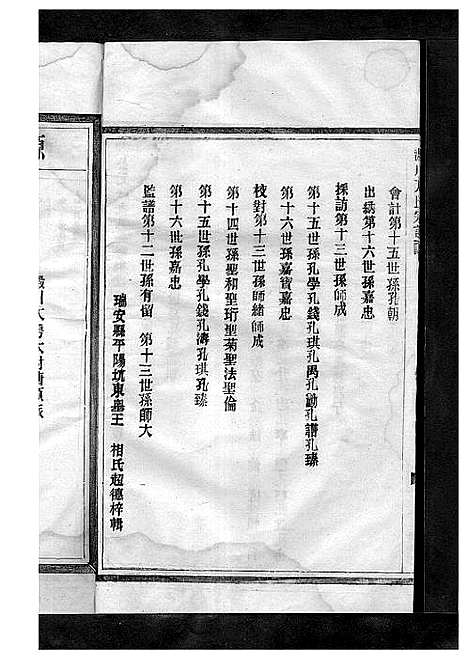 會計第十五世孫孔朝
出綉第十六世孫嘉忠
採訪第十三世孫師成
第十五世孫孔學孔錢孔琪孔禺孔勛孔譜孔臻
第十六世孫嘉寳嘉忠
校對第十三世孫師緒師成
第十四世孫聖和聖珩聖菊聖法聖倫
第十五世孫孔學孔錢孔濤孔琪孔臻
第十六世孫嘉忠
監譜第十二世孫有留 第十三世孫師大
瑞安縣平陽坑東墨王 相氏超德梓輯
源